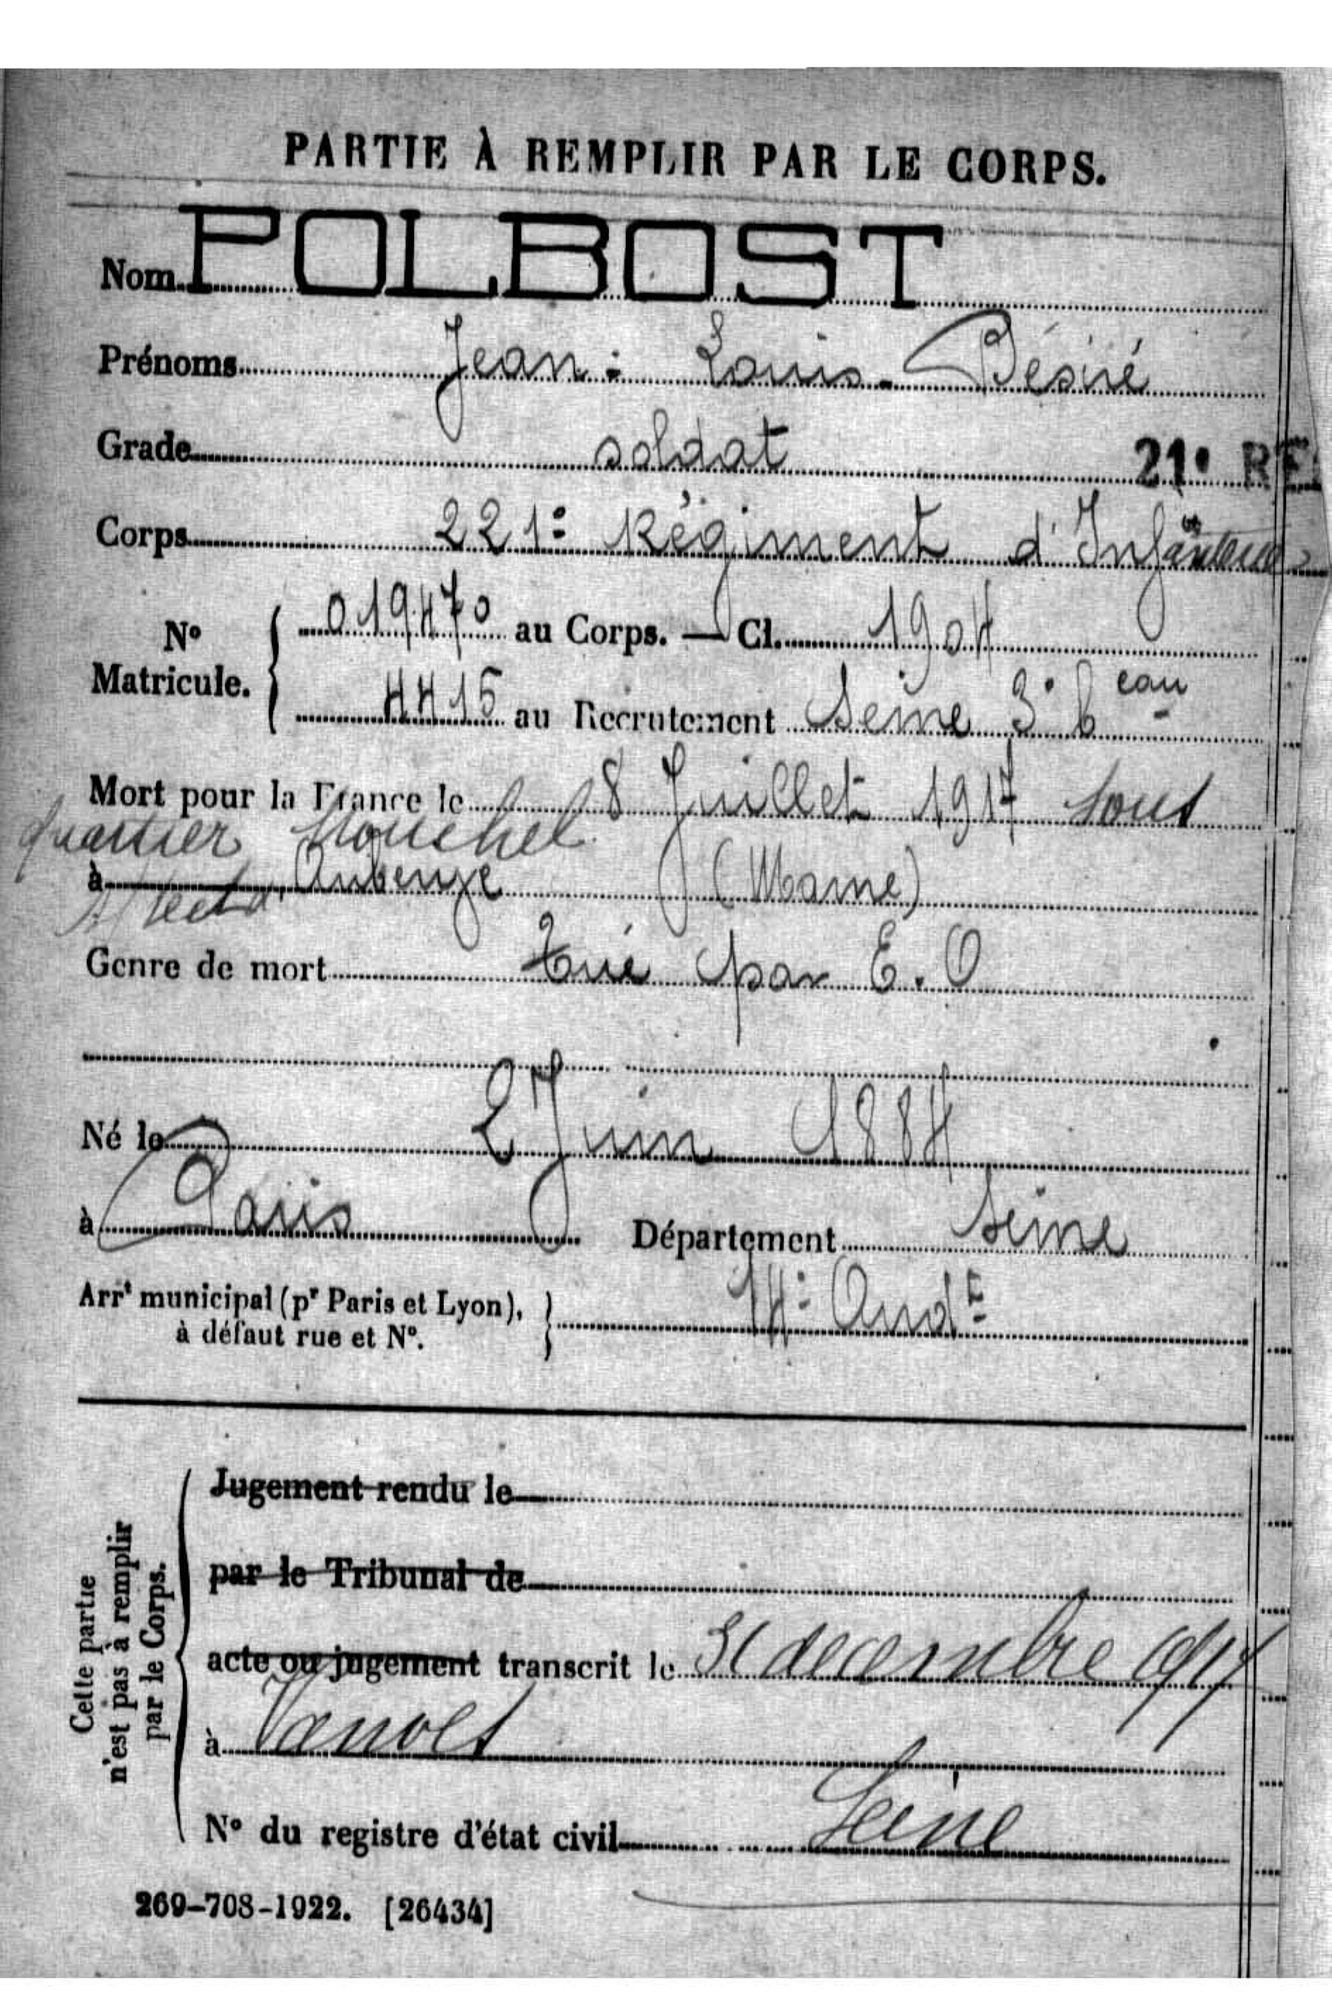 PARTIE À REMPLIR PAR LE CORPS.
Nom POLBOST
Prénoms Jean - Louis - Désiré
Grade soldat 21e RE
Corps 221e Régiment d'Infanterie
No Matricule. { 019470 au Corps. — Cl. 1904
4415 au Recrutement Seine 3e b eau
Mort pour la France le 8 Juillet 1917 sous
quartier Mouchel
à Auberge (Marne)
Genre de mort Tué par E. O
Né le 2 Juin 1884
à Paris Département Seine
Arrt municipal (pr Paris et Lyon), à défaut rue et No. } 14e Arrdt
Cette partie n'est pas à remplir par le Corps.
Jugement rendu le
par le Tribunal de
acte ou jugement transcrit le 31 decembre 1917
à Vanves
No du registre d'état civil Seine
269-708-1922. [26434]